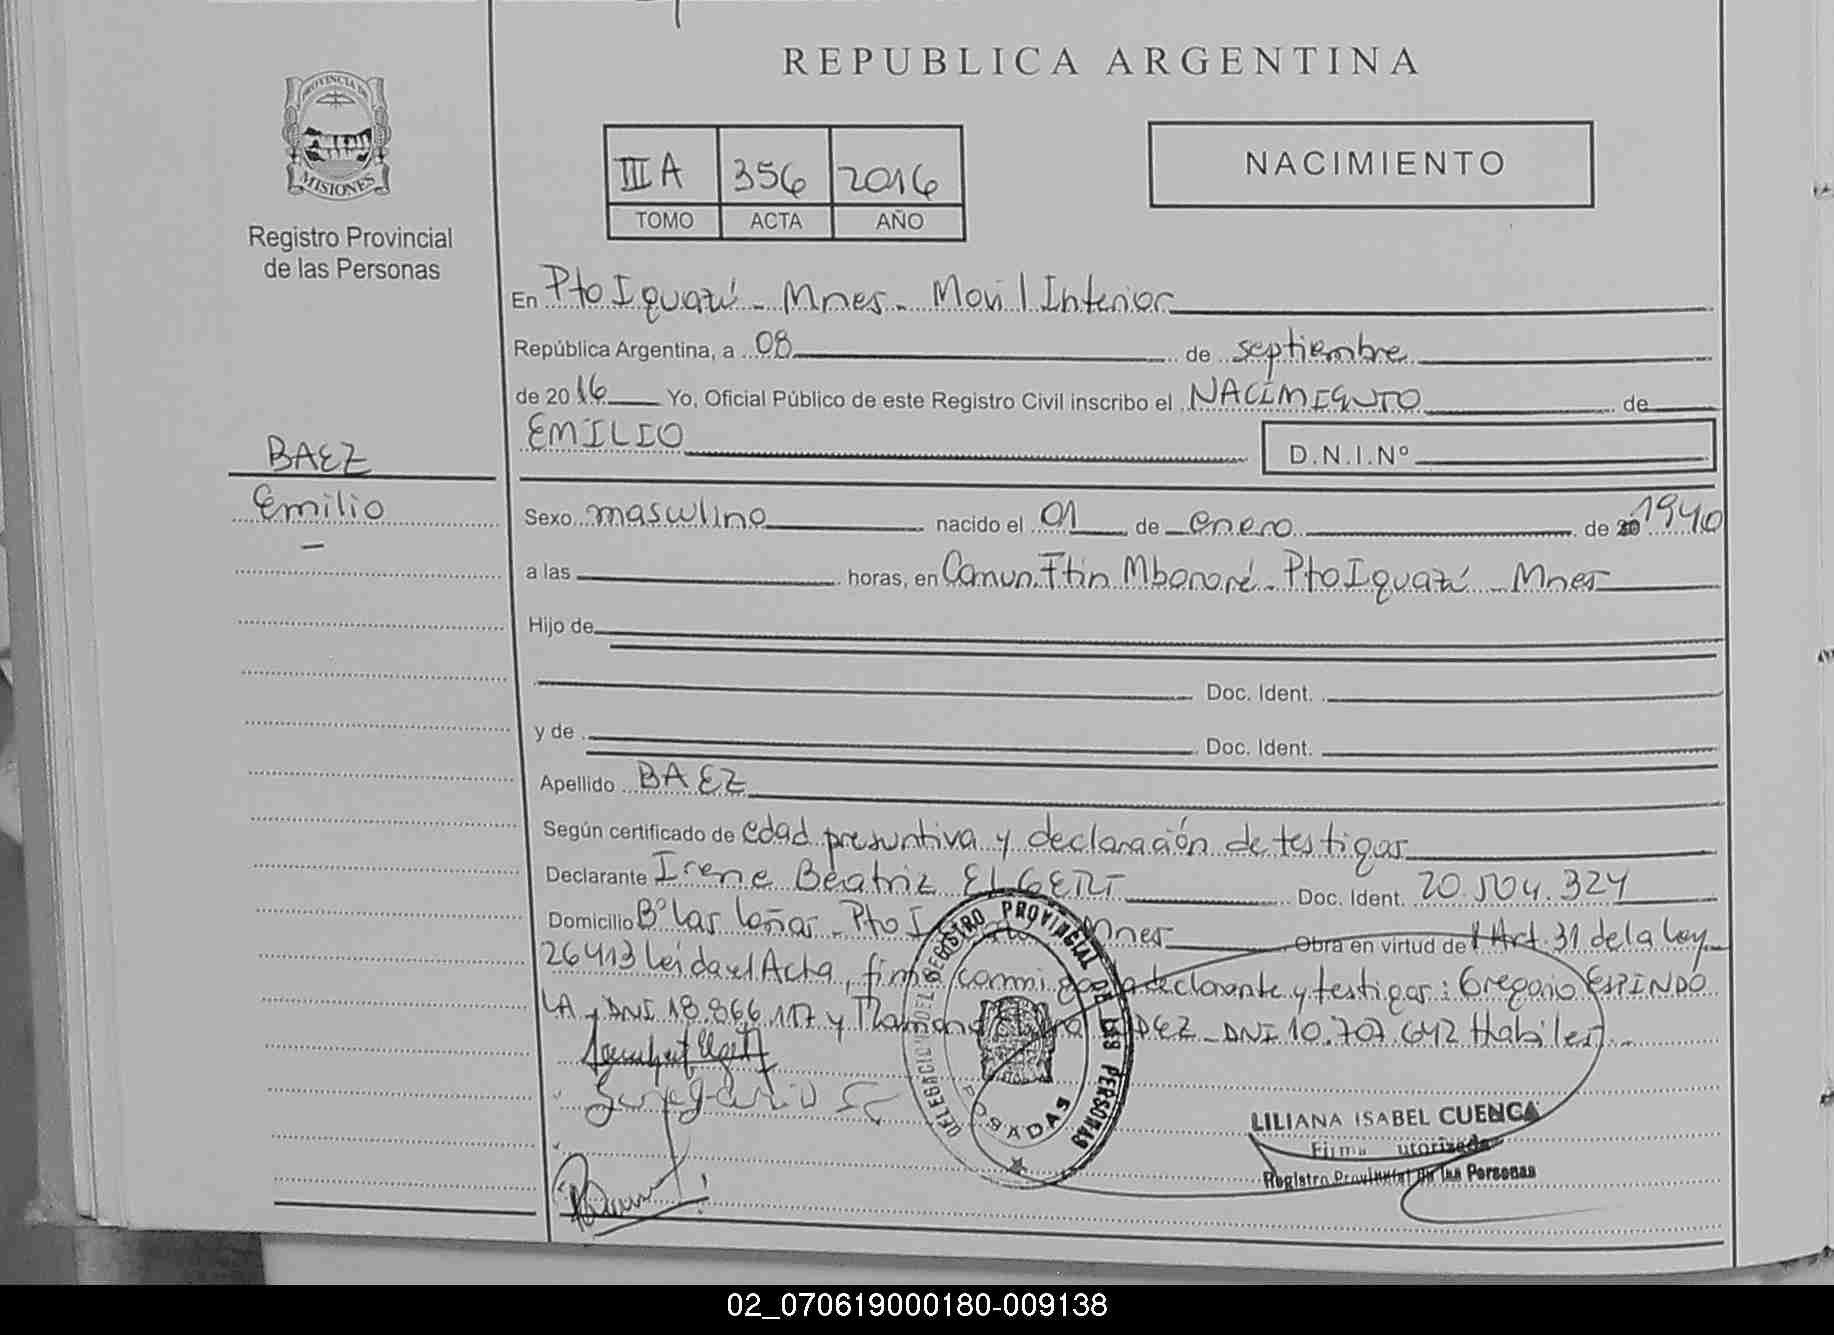 REPUBLICA ARGENTINA
PROVINCIA DE
MISIONES
Registro Provincial
de las Personas
III A 356 2016
TOMO ACTA AÑO
NACIMIENTO
En Pto Iguazú - Mnes - Movil Interior
República Argentina, a 08 de septiembre
de 2016 Yo, Oficial Público de este Registro Civil inscribo el NACIMIENTO de
EMILIO D.N.I.Nº
BAEZ
Emilio
Sexo masculino nacido el 01 de enero de 20 1940
a las horas, en Comun. Ftin Mbororé - Pto Iguazú - Mnes
Hijo de
Doc. Ident.
y de Doc. Ident.
Apellido BAEZ
Según certificado de edad presuntiva y declaración de testigos
Declarante Irene Beatriz ELGERT Doc. Ident. 20.504.324
Domicilio Bº las Pto I Mnes Obra en virtud del Art. 31 de la Ley
26413 Leida el Acta, firma conmigo declarante y testigos: Gregorio ESPINDO
LA - DNI 18.866.117 y Ramona DEZ - DNI 10.707.642 Habiles -
DELEGACION DEL REGISTRO PROVINCIAL DE LAS PERSONAS
POSADAS
LILIANA ISABEL CUENCA
Firma utorizada
Registro Provincial de las Personas
02_070619000180-009138